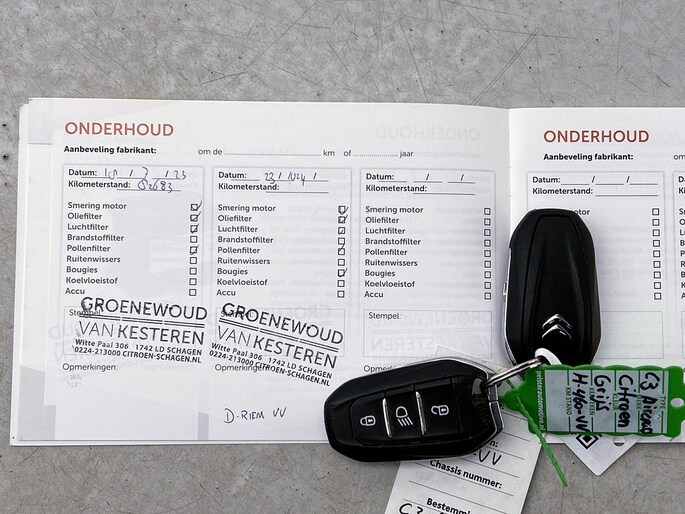 ONDERHOUD
Aanbeveling fabrikant: om de km of jaar
Kilometerstand:
Smering motor
Oliefilter
Luchtfilter
Brandstoffilter
Pollenfilter
Ruitenwissers
Bougies
Koelvloeistof
Accu
GROENEWOUD
VAN KESTEREN
Witte Paal 306 1742 LD SCHAGEN
0224-213000 CITROEN-SCHAGEN.NL
Opmerkingen:
Datum: 23/ /
Kilometerstand:
Smering motor
Oliefilter
Luchtfilter
Brandstoffilter
Pollenfilter
Ruitenwissers
Bougies
Koelvloeistof
Accu
Stempel:
GROENEWOUD
VAN KESTEREN
Witte Paal 306 1742 LD SCHAGEN
0224-213000 CITROEN-SCHAGEN.NL
Opmerkingen:
D-RIEM VV
Datum: / /
Kilometerstand:
Smering motor
Oliefilter
Luchtfilter
Brandstoffilter
Pollenfilter
Ruitenwissers
Bougies
Koelvloeistof
Accu
Stempel:
Opmerkingen:
ONDERHOUD
Aanbeveling fabrikant:
Datum: / /
Kilometerstand:
C3 Aircross
Citroen
Grijs
Chassis nummer:
C3